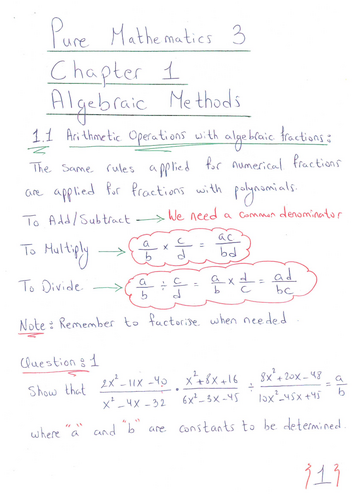 Pure Mathematics 3
Chapter 1
Algebraic Methods
1.1 Arithmetic Operations with algebraic fractions:
The same rules applied for numerical fractions
are applied for fractions with polynomials.
To Add/Subtract → We need a common denominator
To Multiply → a/b × c/d = ac/bd
To Divide → a/b ÷ c/d = a/b × d/c = ad/bc
Note: Remember to factorise when needed.
Question: 1
Show that (2x² - 11x - 40)/(x² - 4x - 32) · (x² + 8x + 16)/(6x² - 3x - 45) ÷ (8x² + 20x - 48)/(10x² - 45x + 45) = a/b
where "a" and "b" are constants to be determined.
}1}